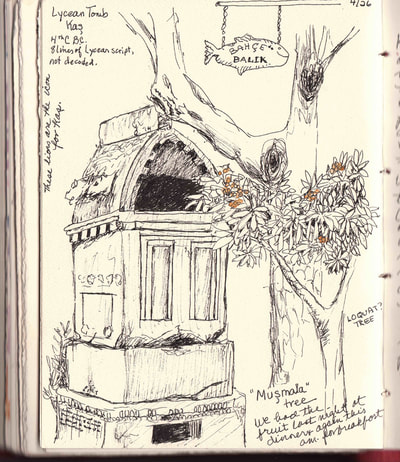 Lycean Tomb
Kaş
4th C BC.
8 lines of Lycean script,
not decoded.
These lions are the icon
for Kaş.
4/26
BAHÇE
BALIK
LOQUAT?
TREE
"Muşmala"
tree
We have the
fruit last night at
dinner & again this
am. for breakfast